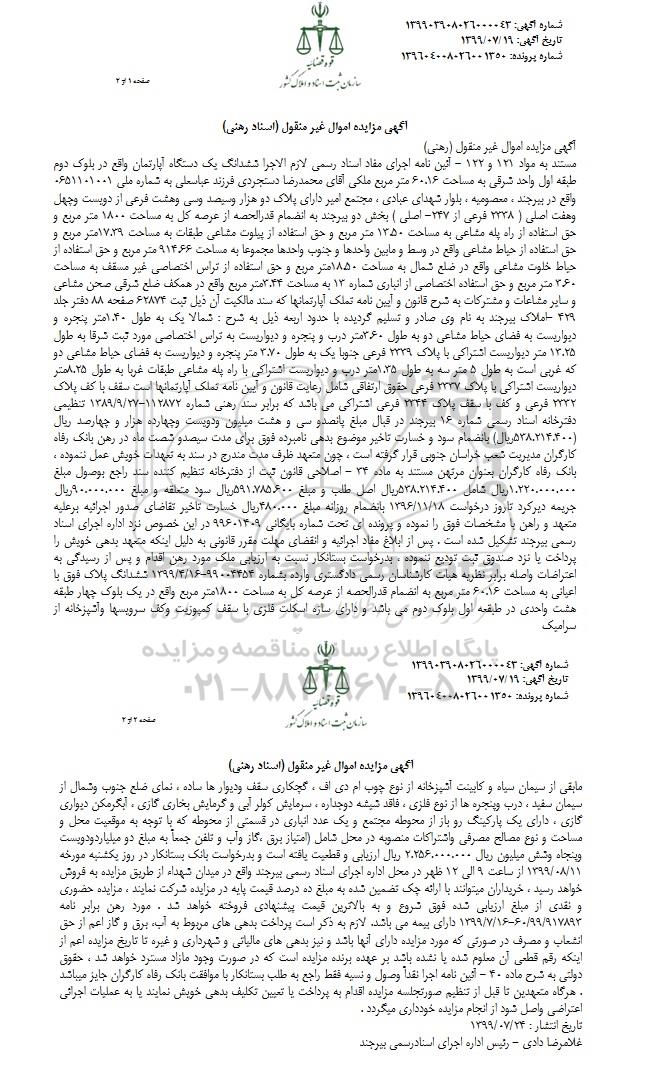 شماره آگهی: ۱۳۹۹۰۳۹۰۸۰۲۶۰۰۰۰۴۳
تاریخ آگهی: ۱۳۹۹/۰۷/۱۹
شماره پرونده: ۱۳۹۶۰۴۰۰۸۰۲۶۰۰۱۳۵۰
قوه قضائیه
سازمان ثبت اسناد و املاک کشور
صفحه ۱ از ۲
آگهی مزایده اموال غیر منقول (اسناد رهنی)
آگهی مزایده اموال غیر منقول (رهنی)
مستند به مواد ۱۲۱ و ۱۲۲ – آئین نامه اجرای مفاد اسناد رسمی لازم الاجرا ششدانگ یک دستگاه آپارتمان واقع در بلوک دوم
طبقه اول واحد شرقی به مساحت ۶۰.۱۶ متر مربع ملکی آقای محمدرضا دستجردی فرزند عباسعلی به شماره ملی ۰۶۵۱۱۰۱۰۰۱
واقع در بیرجند ، معصومیه ، بلوار شهدای عبادی ، مجتمع امیر دارای پلاک دو هزار وسیصد وسی وهشت فرعی از دویست وچهل
وهفت اصلی ( ۲۳۳۸ فرعی از ۲۴۷- اصلی ) بخش دو بیرجند به انضمام قدرالحصه از عرصه کل به مساحت ۱۸۰۰ متر مربع و
حق استفاده از راه پله مشاعی به مساحت ۱۳.۵۰ متر مربع و حق استفاده از پیلوت مشاعی طبقات به مساحت ۱۷.۳۹متر مربع و
حق استفاده از حیاط مشاعی واقع در وسط و مابین واحدها و جنوب واحدها مجموعا به مساحت ۹۱۴.۶۶ متر مربع و حق استفاده از
حیاط خلوت مشاعی واقع در ضلع شمال به مساحت ۱۸.۵۰متر مربع و حق استفاده از تراس اختصاصی غیر مسقف به مساحت
۳.۶۰ متر مربع و حق استفاده اختصاصی از انباری شماره ۱۳ به مساحت ۳.۴۴متر مربع واقع در همکف ضلع شرقی صحن مشاعی
و سایر مشاعات و مشترکات به شرح قانون و آیین نامه تملک آپارتمانها که سند مالکیت آن ذیل ثبت ۶۲۸۷۴ صفحه ۸۸ دفتر جلد
۴۲۹ –املاک بیرجند به نام وی صادر و تسلیم گردیده با حدود اربعه ذیل به شرح : شمالا یک به طول ۱.۴۰متر پنجره و
دیواریست به فضای حیاط مشاعی دو به طول ۳.۶۰متر درب و پنجره و دیواریست به تراس اختصاصی مورد ثبت شرقا به طول
۱۳.۲۵ متر دیواریست اشتراکی با پلاک ۲۳۳۹ فرعی جنوبا یک به طول ۳.۷۰ متر پنجره و دیواریست به فضای حیاط مشاعی دو
که غربی است به طول ۵ متر سه به طول ۱.۳۵متر درب و دیواریست اشتراکی با راه پله مشاعی طبقات غربا به طول ۸.۲۵متر
دیواریست اشتراکی با پلاک ۲۳۳۷ فرعی حقوق ارتفاقی شامل رعایت قانون و آیین نامه تملک آپارتمانها است سقف با کف پلاک
۲۳۳۲ فرعی و کف با سقف پلاک ۲۳۴۴ فرعی اشتراکی می باشد که برابر سند رهنی شماره ۱۱۲۸۷۲–۱۳۸۹/۹/۲۷ تنظیمی
دفترخانه اسناد رسمی شماره ۱۶ بیرجند در قبال مبلغ پانصدو سی و هشت میلیون ودویست وچهارده هزار و چهارصد ریال
(۵۳۸.۲۱۴.۴۰۰ریال) بانضمام سود و خسارت تاخیر موضوع بدهی نامبرده فوق برای مدت سیصدو شصت ماه در رهن بانک رفاه
کارگران مدیریت شعب خراسان جنوبی قرار گرفته است ، چون متعهد ظرف مدت مندرج در سند به تعهدات خویش عمل ننموده ،
بانک رفاه کارگران بعنوان مرتهن مستند به ماده ۳۴ – اصلاحی قانون ثبت از دفترخانه تنظیم کننده سند راجع بوصول مبلغ
۱.۲۲۰.۰۰۰.۰۰۰ریال شامل ۵۳۸.۲۱۴.۴۰۰ریال اصل طلب و مبلغ ۵۹۱.۷۸۵.۶۰۰ریال سود متعلقه و مبلغ ۹۰.۰۰۰.۰۰۰ریال
جریمه دیرکرد تاروز درخواست ۱۳۹۶/۱۱/۱۸ بانضمام روزانه مبلغ ۴۸۰.۰۰۰ریال خسارت تاخیر تقاضای صدور اجرائیه برعلیه
متعهد و راهن با مشخصات فوق را نموده و پرونده ای تحت شماره بایگانی ۹۹۶۰۱۴۰۹ در این خصوص نزد اداره اجرای اسناد
رسمی بیرجند تشکیل شده است . پس از ابلاغ مفاد اجرائیه و انقضای مهلت مقرر قانونی به دلیل اینکه متعهد بدهی خویش را
پرداخت یا نزد صندوق ثبت تودیع ننموده ، بدرخواست بستانکار نسبت به ارزیابی ملک مورد رهن اقدام و پس از رسیدگی به
اعتراضات واصله برابر نظریه هیات کارشناسان رسمی دادگستری وارده بشماره ۹۹۰۰۴۴۵۴–۱۳۹۹/۴/۱۶ ششدانگ پلاک فوق با
اعیانی به مساحت ۶۰.۱۶ متر مربع به انضمام قدرالحصه از عرصه کل به مساحت ۱۸۰۰متر مربع واقع در یک بلوک چهار طبقه
هشت واحدی در طبقعه اول بلوک دوم می باشد و دارای سازه اسکلت فلزی با سقف کمپوزیت وکف سرویسها وآشپزخانه از
سرامیک
پایگاه اطلاع رسانی مناقصه و مزایده
۰۲۱-۸۸۳۴۹۶۷۰-۵
شماره آگهی: ۱۳۹۹۰۳۹۰۸۰۲۶۰۰۰۰۴۳
تاریخ آگهی: ۱۳۹۹/۰۷/۱۹
شماره پرونده: ۱۳۹۶۰۴۰۰۸۰۲۶۰۰۱۳۵۰
قوه قضائیه
سازمان ثبت اسناد و املاک کشور
صفحه ۲ از ۲
آگهی مزایده اموال غیر منقول (اسناد رهنی)
مابقی از سیمان سیاه و کابینت آشپزخانه از نوع چوب ام دی اف ، گچکاری سقف ودیوار ها ساده ، نمای ضلع جنوب وشمال از
سیمان سفید ، درب وپنجره ها از نوع فلزی ، فاقد شیشه دوجداره ، سرمایش کولر آبی و گرمایش بخاری گازی ، آبگرمکن دیواری
گازی ، دارای یک پارکینگ رو باز از محوطه مجتمع و یک عدد انباری در قسمتی از محوطه که با توجه به موقعیت محل و
مساحت و نوع مصالح مصرفی واشتراکات منصوبه در محل شامل (امتیاز برق ،گاز وآب و تلفن جمعاً به مبلغ دو میلیاردودویست
وپنجاه وشش میلیون ریال ۲.۲۵۶.۰۰۰.۰۰۰ ریال ارزیابی و قطعیت یافته است و بدرخواست بانک بستانکار در روز یکشنبه مورخه
۱۳۹۹/۰۸/۱۱ از ساعت ۹ الی ۱۲ ظهر در محل اداره اجرای اسناد رسمی بیرجند واقع در میدان شهداء از طریق مزایده به فروش
خواهد رسید ، خریداران میتوانند با ارائه چک تضمین شده به مبلغ ده درصد قیمت پایه در مزایده شرکت نمایند ، مزایده حضوری
و نقدی از مبلغ ارزیابی شده فوق شروع و به بالاترین قیمت پیشنهادی فروخته خواهد شد . مورد رهن برابر نامه
۶۰/۹۹/۹۱۷۸۹۳–۱۳۹۹/۷/۱۶ دارای بیمه می باشد. لازم به ذکر است پرداخت بدهی های مربوط به آب، برق و گاز اعم از حق
انشعاب و مصرف در صورتی که مورد مزایده دارای آنها باشد و نیز بدهی های مالیاتی و شهرداری و غیره تا تاریخ مزایده اعم از
اینکه رقم قطعی آن معلوم شده یا نشده باشد بر عهده برنده مزایده است که در صورت وجود مازاد مسترد خواهد شد ، حقوق
دولتی به شرح ماده ۴۰ – آئین نامه اجرا نقداً وصول و نسیه فقط راجع به طلب بستانکار با موافقت بانک رفاه کارگران جایز میباشد
. هرگاه متعهدین تا قبل از تنظیم صورتجلسه مزایده اقدام به پرداخت یا تعیین تکلیف بدهی خویش نمایند یا به عملیات اجرائی
اعتراضی واصل شود از انجام مزایده خودداری میگردد .
تاریخ انتشار : ۱۳۹۹/۰۷/۲۴
غلامرضا دادی – رئیس اداره اجرای اسنادرسمی بیرجند